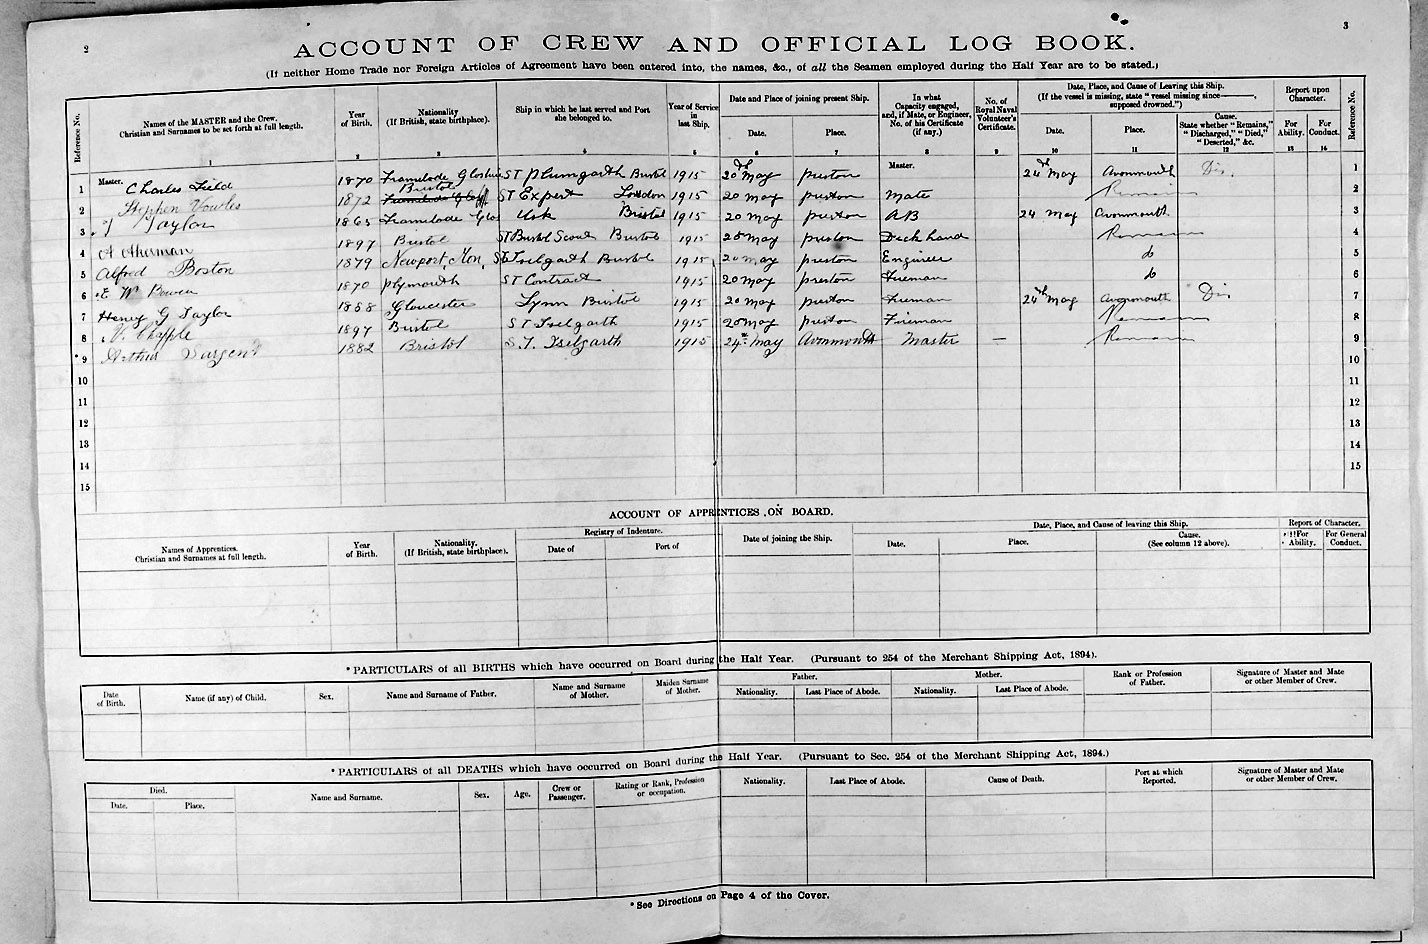 2
3
ACCOUNT OF CREW AND OFFICIAL LOG BOOK.
(If neither Home Trade nor Foreign Articles of Agreement have been entered into, the names, &c., of all the Seamen employed during the Half Year are to be stated.)
Reference No. Names of the MASTER and the Crew. Christian and Surnames to be set forth at full length. Year of Birth. Nationality (If British, state birthplace). Ship in which he last served and Port she belonged to. Year of Service in last Ship. Date and Place of joining present Ship. Date. Place. In what Capacity engaged, and, if Mate, or Engineer, No. of his Certificate (if any.) No. of Royal Naval Volunteer's Certificate. Date, Place, and Cause of Leaving this Ship. (If the vessel is missing, state "vessel missing since———, supposed drowned.") Date. Place. Cause. State whether "Remains," "Discharged," "Died," "Deserted," &c. Report upon Character. For Ability. For Conduct. Reference No.
1 2 3 4 5 6 7 8 9 10 11 12 13 14
1 Master. Charles Field 1870 Framilode Gloshire ST Plumgarth Bristol 1915 20th May preston Master. 24th May Avonmouth Dis. 1
2 Stephen Vowles 1872 Bristol Framilode Glos ST Expert London 1915 20 May preston Mate Remains 2
3 J Taylor 1865 Framilode Glos Usk Bristol 1915 20 May preston AB 24 May Avonmouth 3
4 A Akerman 1897 Bristol ST Bristol Scout Bristol 1915 20 May preston Deck hand Remains 4
5 Alfred Boston 1879 Newport, Mon, ST Iselgarth Bristol 1915 20 May preston Engineer do 5
6 E W Bowen 1870 plymouth ST Contract 1915 20 May preston Fireman do 6
7 Henry G Taylor 1858 Gloucester Lynn Bristol 1915 20 May preston Fireman 24th May Avonmouth Dis 7
8 V. Chapple 1897 Bristol ST Iselgarth 1915 20 May preston Fireman Remains 8
9 Arthur Sargent 1882 Bristol S.T. Iselgarth 1915 24th May Avonmouth Master — Remains 9
10 10
11 11
12 12
13 13
14 14
15 15
ACCOUNT OF APPRENTICES ON BOARD.
Names of Apprentices. Christian and Surnames at full length. Year of Birth. Nationality. (If British, state birthplace). Registry of Indenture. Date of Port of Date of joining the Ship. Date, Place, and Cause of leaving this Ship. Date. Place. Cause. (See column 12 above). Report of Character. For Ability. For General Conduct.
*PARTICULARS of all BIRTHS which have occurred on Board during the Half Year. (Pursuant to 254 of the Merchant Shipping Act, 1894).
Date of Birth. Name (if any) of Child. Sex. Name and Surname of Father. Name and Surname of Mother. Maiden Surname of Mother. Father. Nationality. Last Place of Abode. Mother. Nationality. Last Place of Abode. Rank or Profession of Father. Signature of Master and Mate or other Member of Crew.
*PARTICULARS of all DEATHS which have occurred on Board during the Half Year. (Pursuant to Sec. 254 of the Merchant Shipping Act, 1894.)
Died. Date. Place. Name and Surname. Sex. Age. Crew or Passenger. Rating or Rank, Profession or occupation. Nationality. Last Place of Abode. Cause of Death. Port at which Reported. Signature of Master and Mate or other Member of Crew.
*See Directions on Page 4 of the Cover.